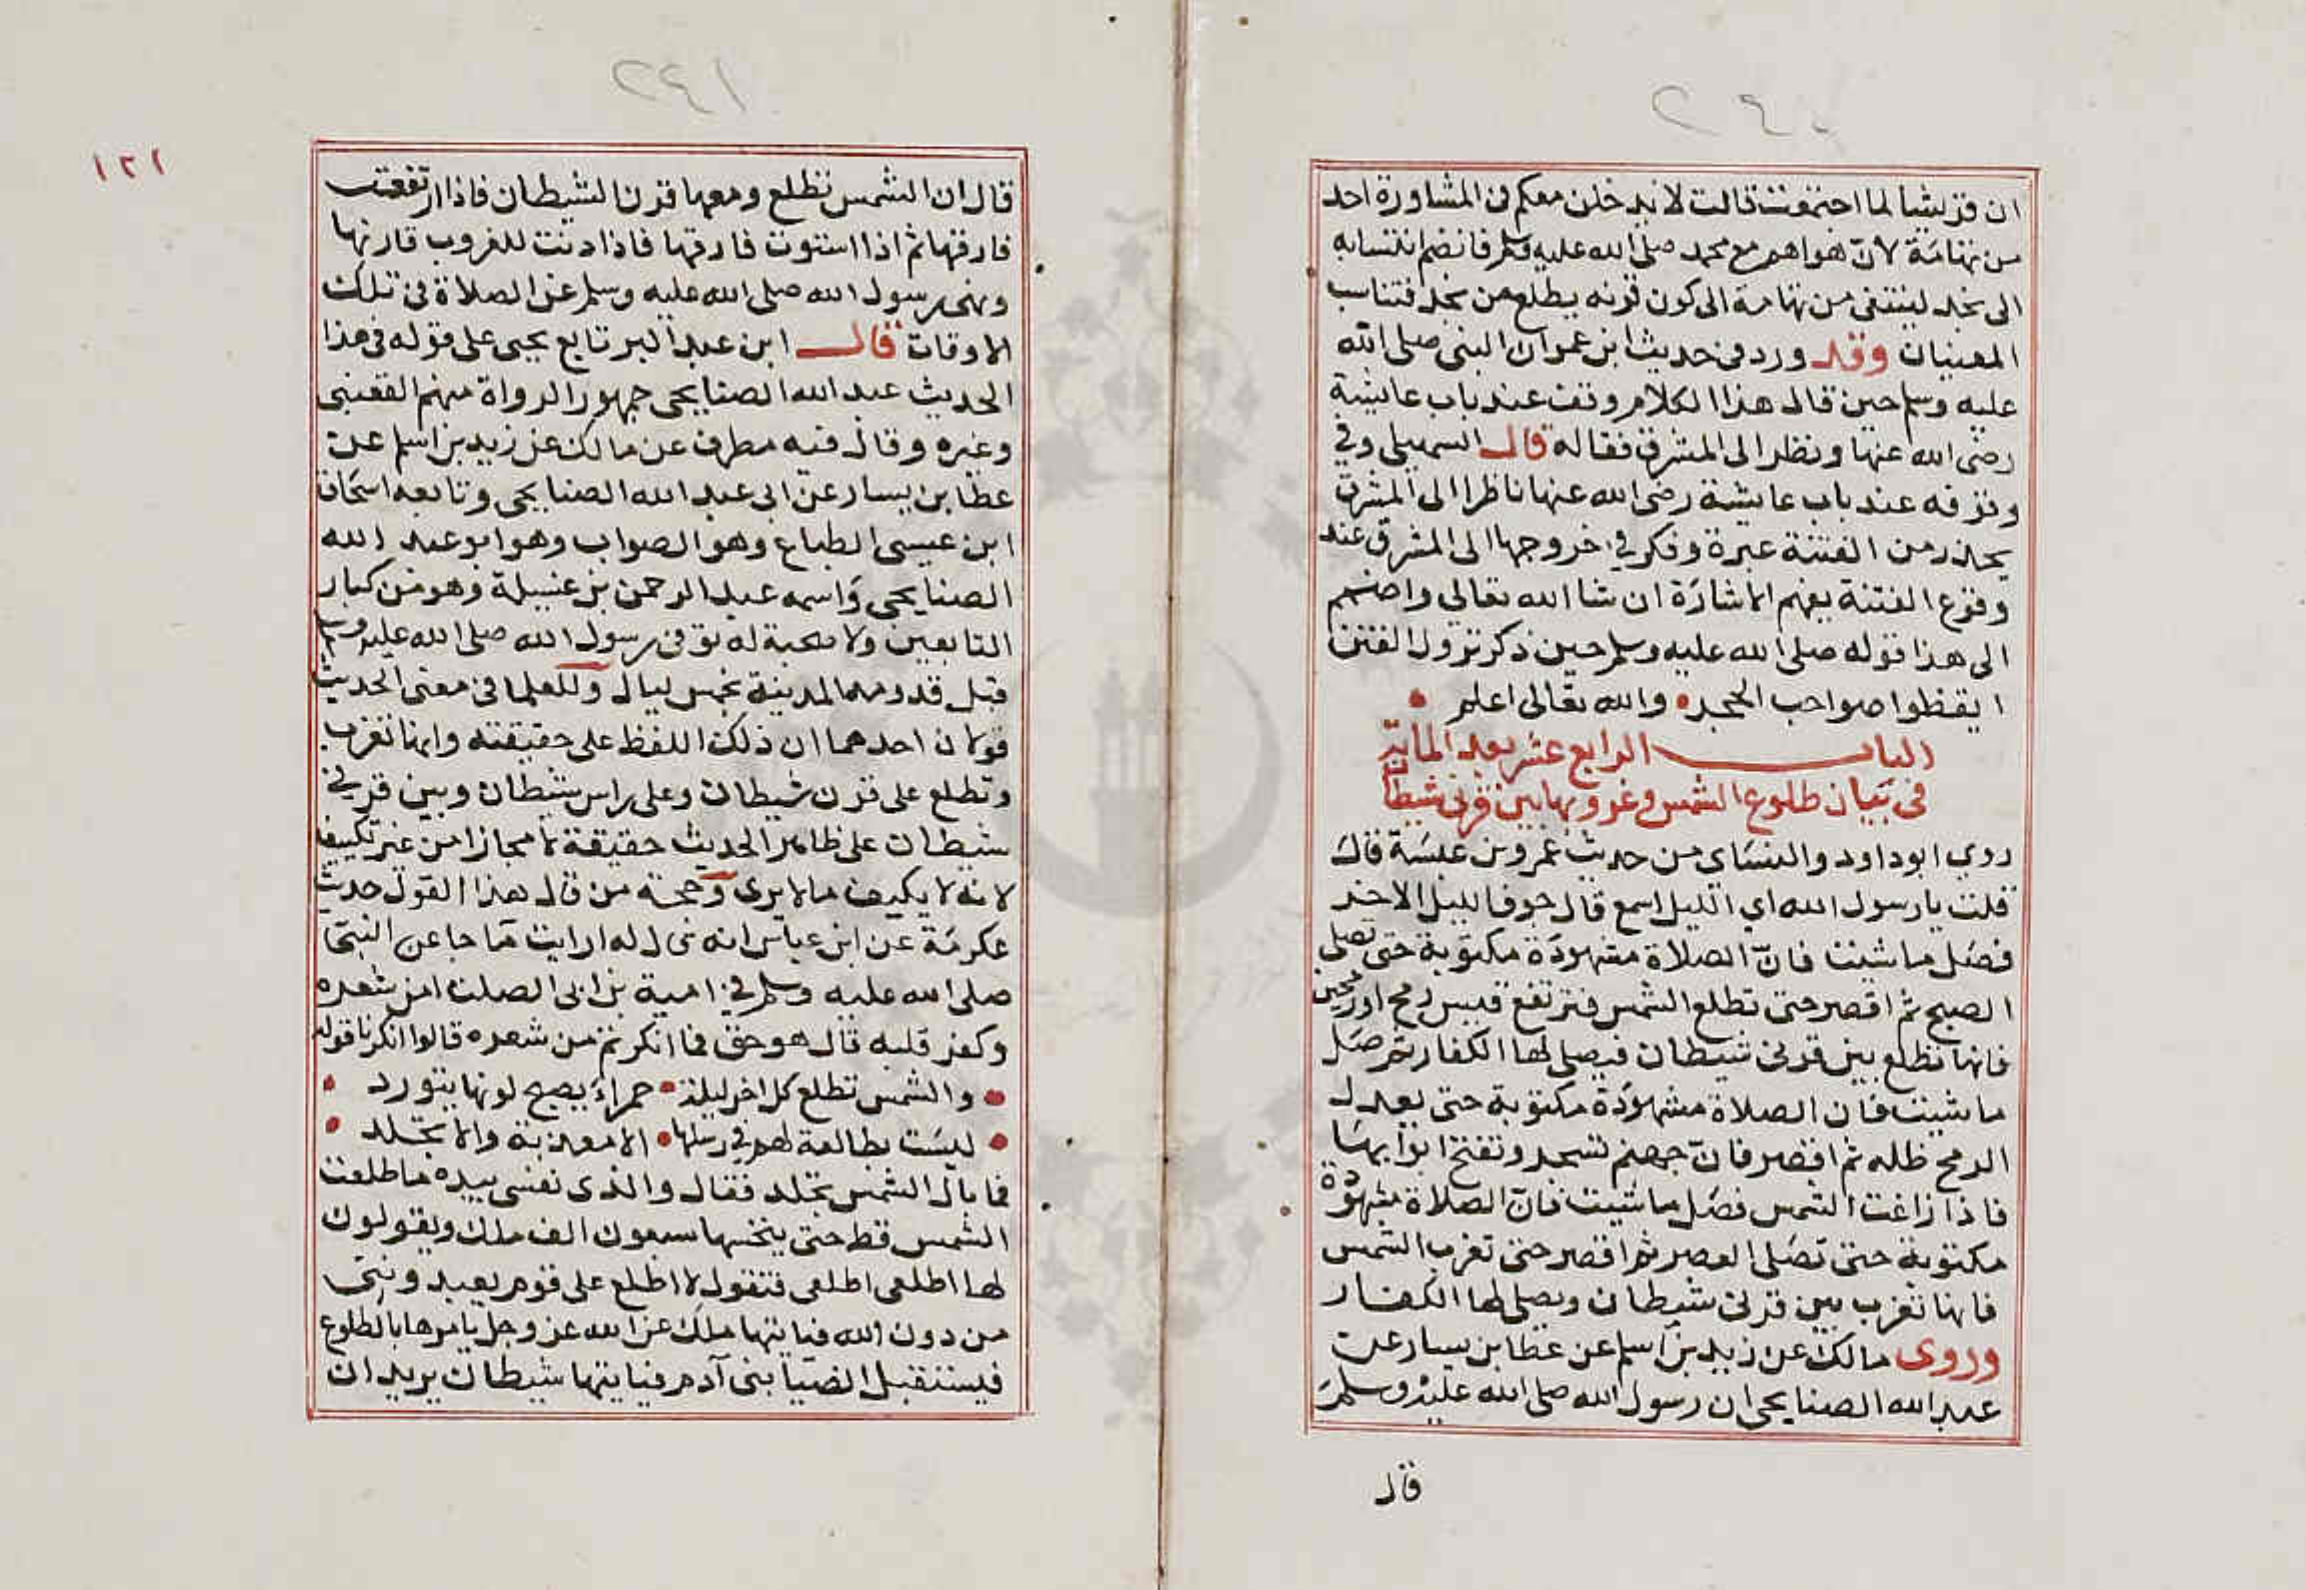 ٢٤٠
ان قريشا لما اجتمعت قالت لا يدخلن معكم في المشاورة احد
من تهامة لان هواهم مع محمد صلى الله عليه وسلم فانضم انتسابه
الى نجد لينتفي من تهامة الى كون قرنه يطلع من نجد فتناسب
المعنيان وقد ورد في حديث ابن عمر ان النبي صلى الله
عليه وسلم حين قال هذا الكلام وقف عند باب عايشة
رضى الله عنها ونظر الى المشرق فقاله قال السهيلى وفي
وقوفه عند باب عايشة رضى الله عنها ناظرا الى المشرق
يحذر من الفتنة عبرة وفكر في خروجها الى المشرق عند
وقوع الفتنة يفهم الاشارة ان شا الله تعالي واضمم
الى هذا قوله صلى الله عليه وسلم حين ذكر نزول الفتن
ايقظوا صواحب الحجر والله تعالى اعلم
الباب الرابع عشر بعد الماية
في بيان طلوع الشمس وغروبها بين قرني شيطان
روي ابو داود والنساى من حديث عمرو بن عبسة قال
قلت يا رسول الله اي الليل اسمع قال جوف الليل الاخر
فصل ما شيت فان الصلاة مشهودة مكتوبة حتى تصلي
الصبح ثم اقصر حتى تطلع الشمس فترتفع قيس رمح او رمحين
فانها تطلع بين قرنى شيطان فيصلى لها الكفار ثم صل
ما شيت فان الصلاة مشهودة مكتوبة حتى يعدل
الرمح ظله ثم اقصر فان جهنم تسجر وتفتح ابوابها
فاذا زاغت الشمس فصل ما شيت فان الصلاة مشهودة
مكتوبة حتى تصلى العصر ثم اقصر حتى تغرب الشمس
فانها تغرب بين قرنى شيطان ويصلى لها الكفار
وروى مالك عن زيد بن اسلم عن عطا بن يسار عن
عبد الله الصنابحى ان رسول الله صلى الله عليه وسلم
قال
٢٤١
١٢١
قال ان الشمس تطلع ومعها قرن الشيطان فاذا ارتفعت
فارقها ثم اذا استوت فارقها فاذا دنت للغروب قارنها
ونهى رسول الله صلى الله عليه وسلم عن الصلاة في تلك
الاوقات قال ابن عبد البر تابع يحيى على قوله في هذا
الحديث عبد الله الصنابحى جمهور الرواة منهم القعنبى
وغيره وقال فيه مطرف عن مالك عن زيد بن اسلم عن
عطا بن يسار عن ابى عبد الله الصنابحى وتابعه اسحاق
ابن عيسى الطباع وهو الصواب وهو ابو عبد الله
الصنابحي واسمه عبد الرحمن بن عسيلة وهو من كبار
التابعين ولا صحبة له توفى رسول الله صلى الله عليه وسلم
قبل قدومه المدينة بخمس ليال وللعلما في معنى الحديث
قولان احدهما ان ذلك اللفظ على حقيقته وانها تغرب
وتطلع على قرن شيطان وعلى راس شيطان وبين قرني
شيطان على ظاهر الحديث حقيقة لا مجازا من غير تكييف
لانه لا يكيف ما لا يرى وحجة من قال هذا القول حديث
عكرمة عن ابن عباس انه قال له ارايت ما جا عن النبى
صلى الله عليه وسلم في امية بن ابى الصلت امن شعره
وكفر قلبه قال هو حق فما انكرتم من شعره قالوا انكرنا قوله
والشمس تطلع كل اخر ليلة حمراء يصبح لونها يتورد
ليست بطالعة لهم في رسلها الا معذبة والا تجلد
فما بال الشمس تجلد فقال والذى نفسى بيده ما طلعت
الشمس قط حتى ينخسها سبعون الف ملك ويقولون
لها اطلعى اطلعى فتقول لا اطلع على قوم يعبدونني
من دون الله فياتيها ملك عن الله عز وجل يامرها بالطلوع
فيستقبل الضيا بنى آدم فياتيها شيطان يريد ان